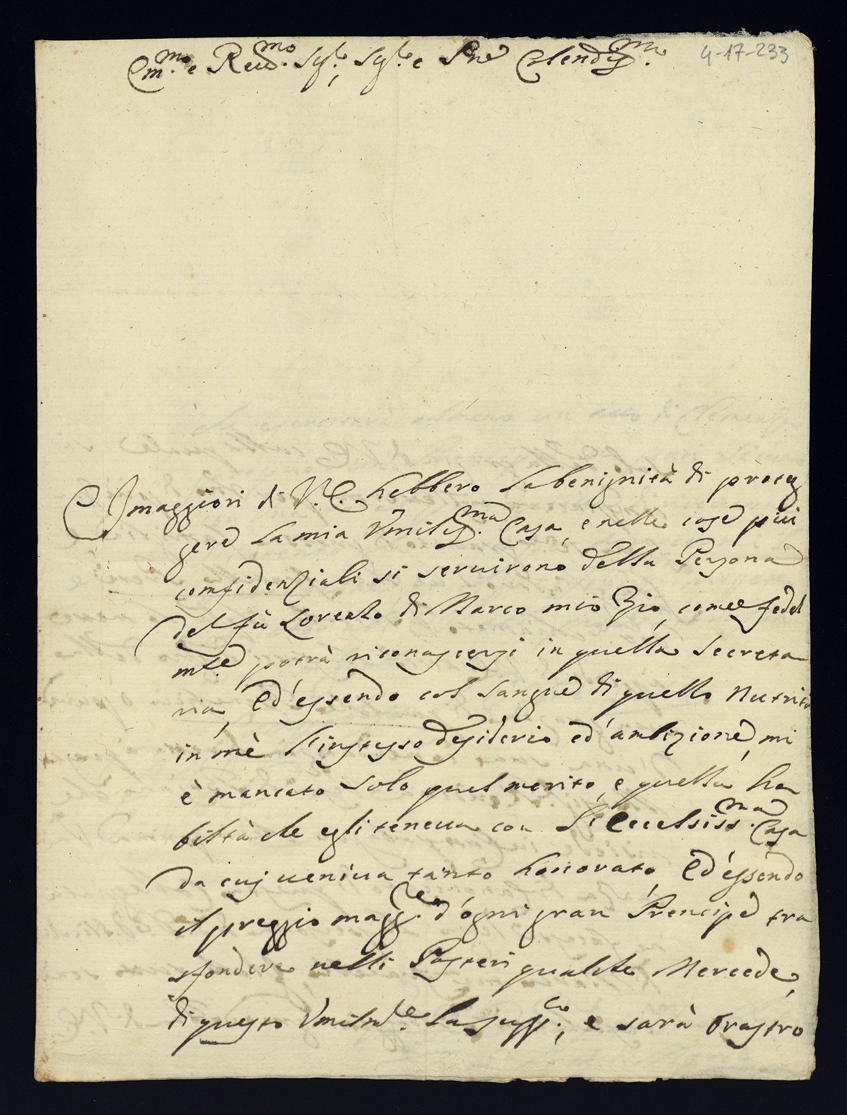 Em.mo e Rev.mo Sig.re, Sig.re e Pne Colendis.mo
4-17-233
I maggiori di V.E. hebbero la benignità di proteg
gere la mia Vmilis.ma Casa, e nelle cose piu
confidenziali si seruirono della Persona
del fù Lorenzo di Marco mio Zio, come fedel
m.te potrà riconoscersi in quella Secreta
ria, Ed'essendo col sangue di quello nutrito
in mè l'istesso desiderio ed'ambizione, mi
è mancato solo quel merito, e quella ha
biltà che egli teneua con l'Eccelsiss.ma Casa
da cui ueniua tanto honorato, Ed'essendo
il preggio magg.re d'ogni gran Prencipe tra
sfondere nelli Posteri qualche Mercede,
di questo Vmilm.te la supp.co, e sarà